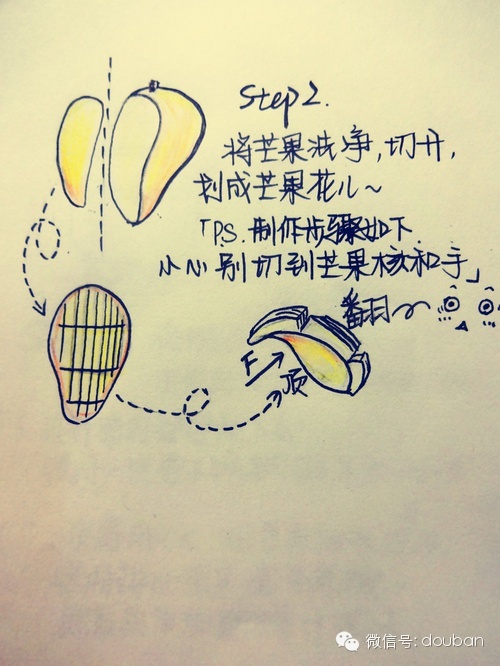 Step2.
将芒果洗净,切开,
划成芒果花儿~
「P.S.制作步骤如下
小心别切到芒果核和手」
翻
F
顶
微信号: douban